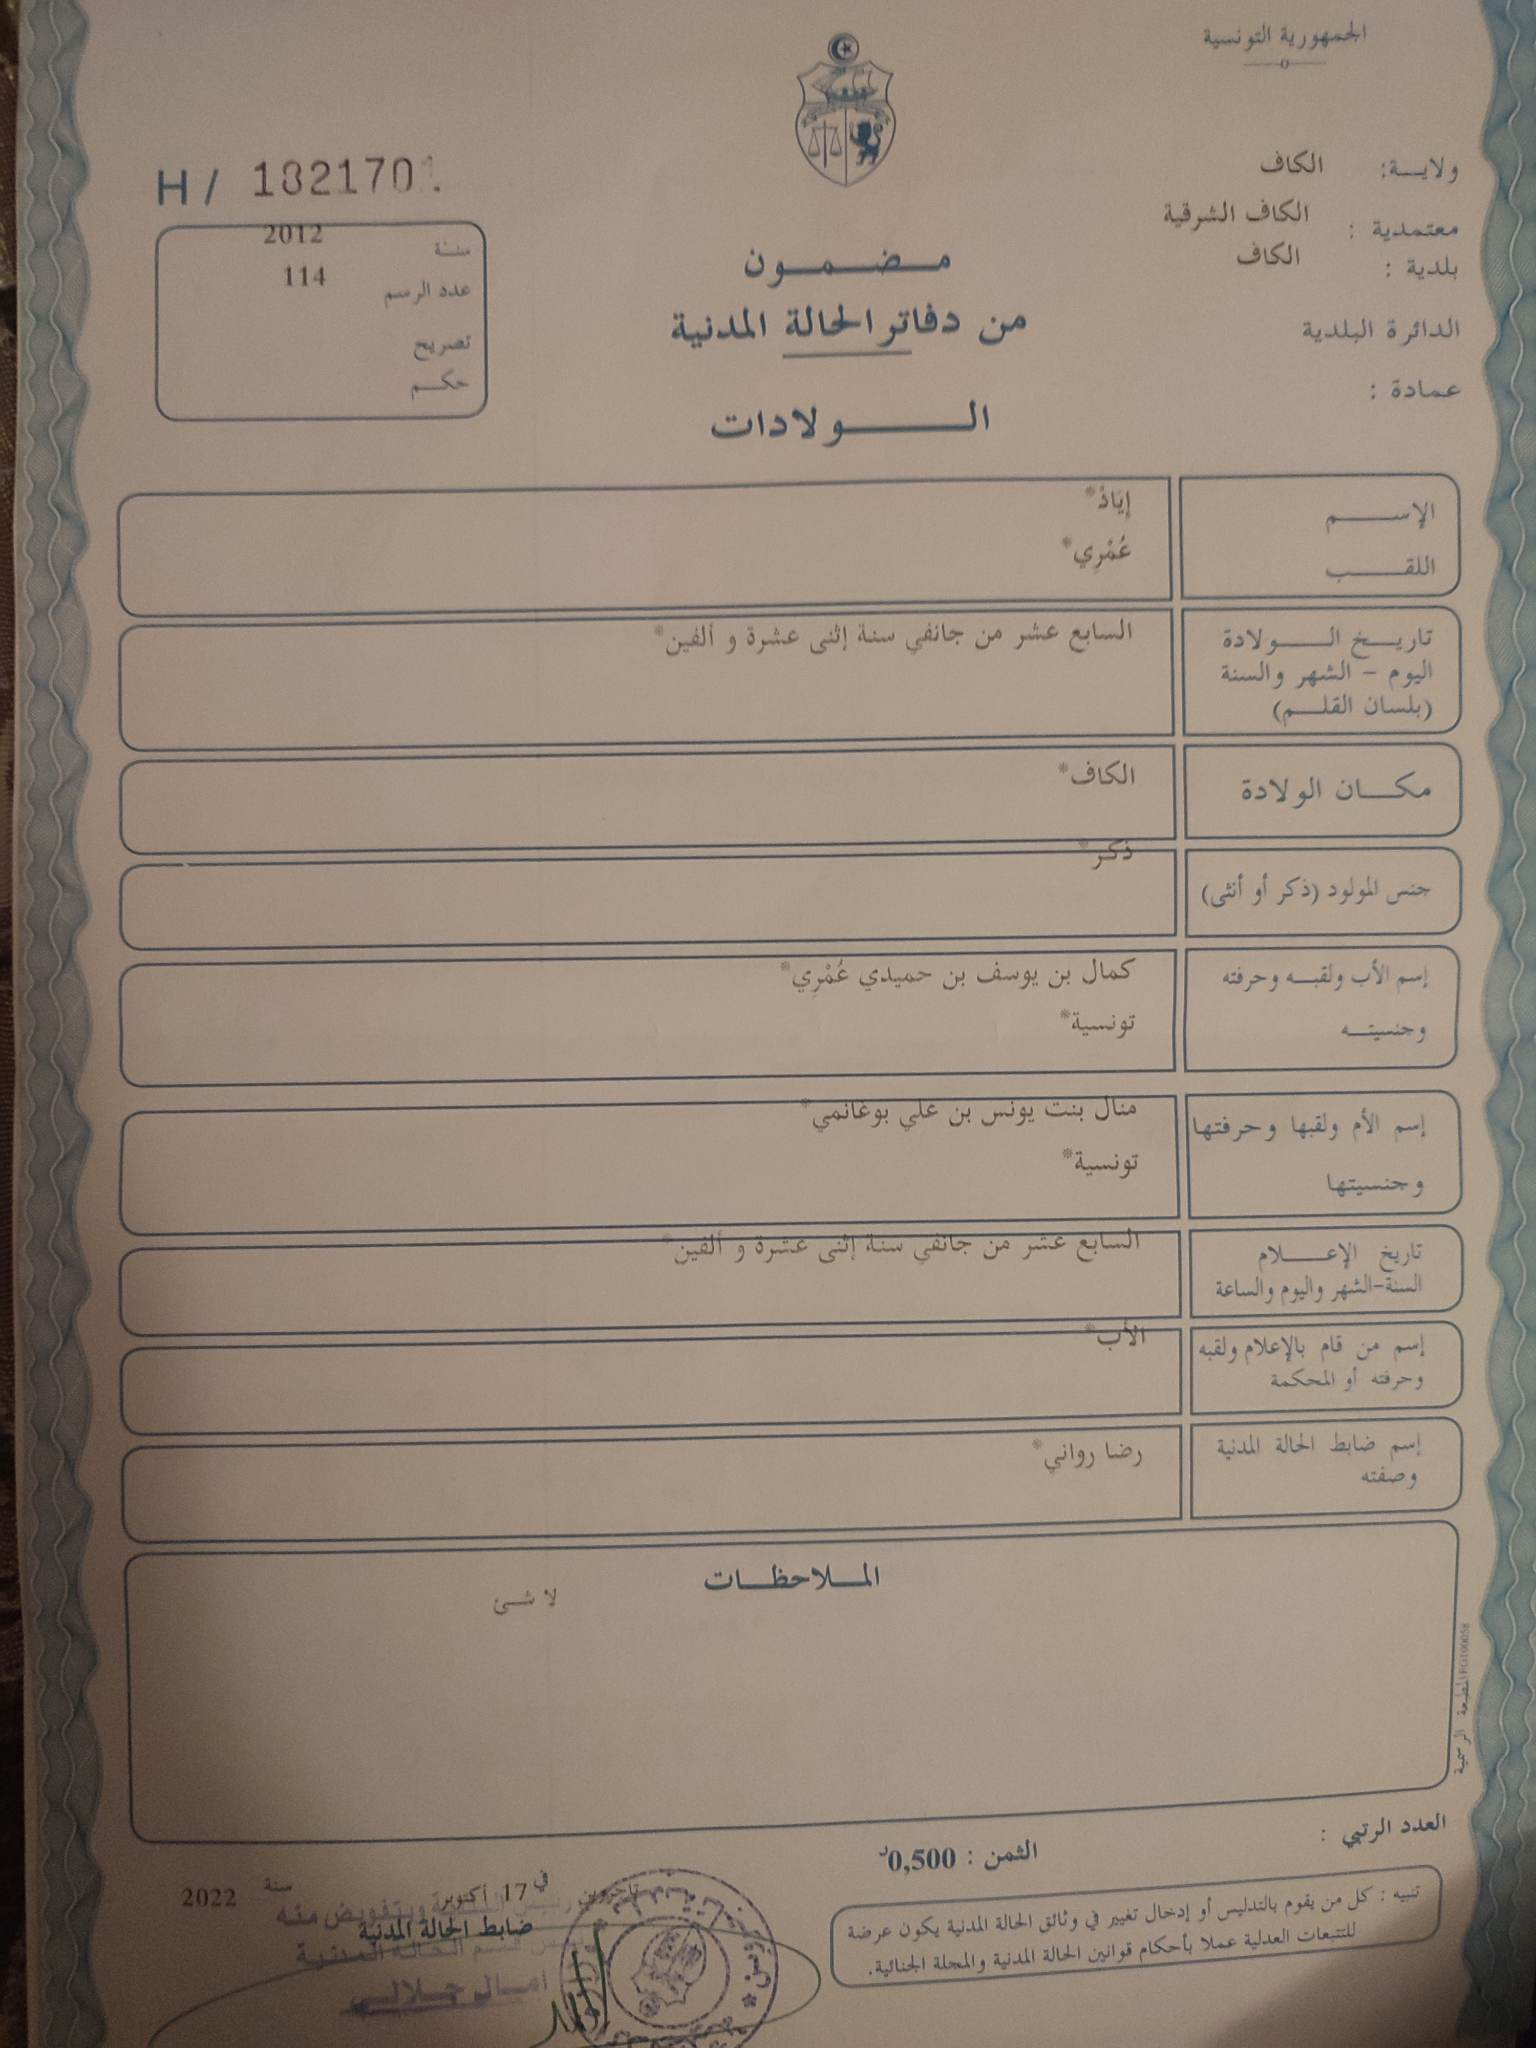 الجمهورية التونسية
ولايـــة: الكاف
معتمدية : الكاف الشرقية
بلدية : الكاف
الدائرة البلدية
عمادة :
H / 182170
سنة 2012
عدد الرسم 114
تصريح
حكم
مـضـمـون
من دفاتر الحالة المدنية
الـولادات
الإســـم إِيَاذْ*
اللقـــب عُمْرِي*
تاريـخ الـــولادة السابع عشر من جانفي سنة إثنى عشرة و ألفين*
اليوم - الشهر والسنة
(بلسان القلـــم)
مكـــان الولادة الكاف*
جنس المولود (ذكر أو أنثى) ذكر*
إسم الأب ولقبـــه وحرفته كمال بن يوسف بن حميدي عُمْرِي*
وجنسيتـــه تونسية*
إسم الأم ولقبها وحرفتها منال بنت يونس بن علي بوغانمي*
وجنسيتها تونسية*
تاريخ الإعــلام السابع عشر من جانفي سنة إثنى عشرة و ألفين*
السنة-الشهر واليوم والساعة
إسم من قام بالإعلام ولقبه الأب*
وحرفته أو المحكمة
إسم ضابط الحالة المدنية رضا رواني*
وصفته
المـلاحظـات
لا شئ
المطبعة الرسمية FG100058
العدد الرتبي :
الثمن : 0,500د
تنبيه : كل من يقوم بالتدليس أو إدخال تغيير في وثائق الحالة المدنية يكون عرضة
للتتبعات العدلية عملا بأحكام قوانين الحالة المدنية والمجلة الجنائية.
تاجروين في 17 أكتوبر سنة 2022
ضابط الحالة المدنية
وبتفويض منه
قسم الحالة المدنية
امال جلالي